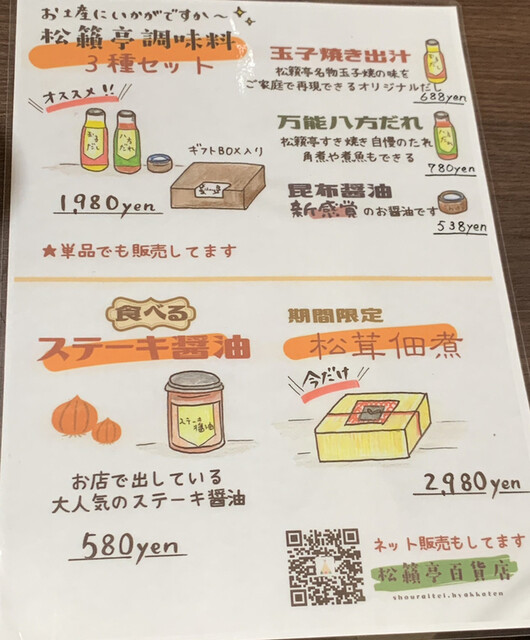 お土産にいかがですか〜
松籟亭調味料
3種セット
オススメ!!
玉子だし
八方だれ
ギフトBOX入り
1,980yen
★単品でも販売してます
玉子焼き出汁
松籟亭名物玉子焼の味を
ご家庭で再現できるオリジナルだし
688yen
万能八方だれ
松籟亭すき焼き自慢のたれ
角煮や煮魚もできる
780yen
昆布醤油
新感賞のお醤油です
538yen
食べる
ステーキ醤油
ステーキ
醤油
お店で出している
大人気のステーキ醤油
580yen
期間限定
松茸佃煮
今だけ
2,980yen
ネット販売もしてます
松籟亭百貨店
shouraitei.hyakkaten